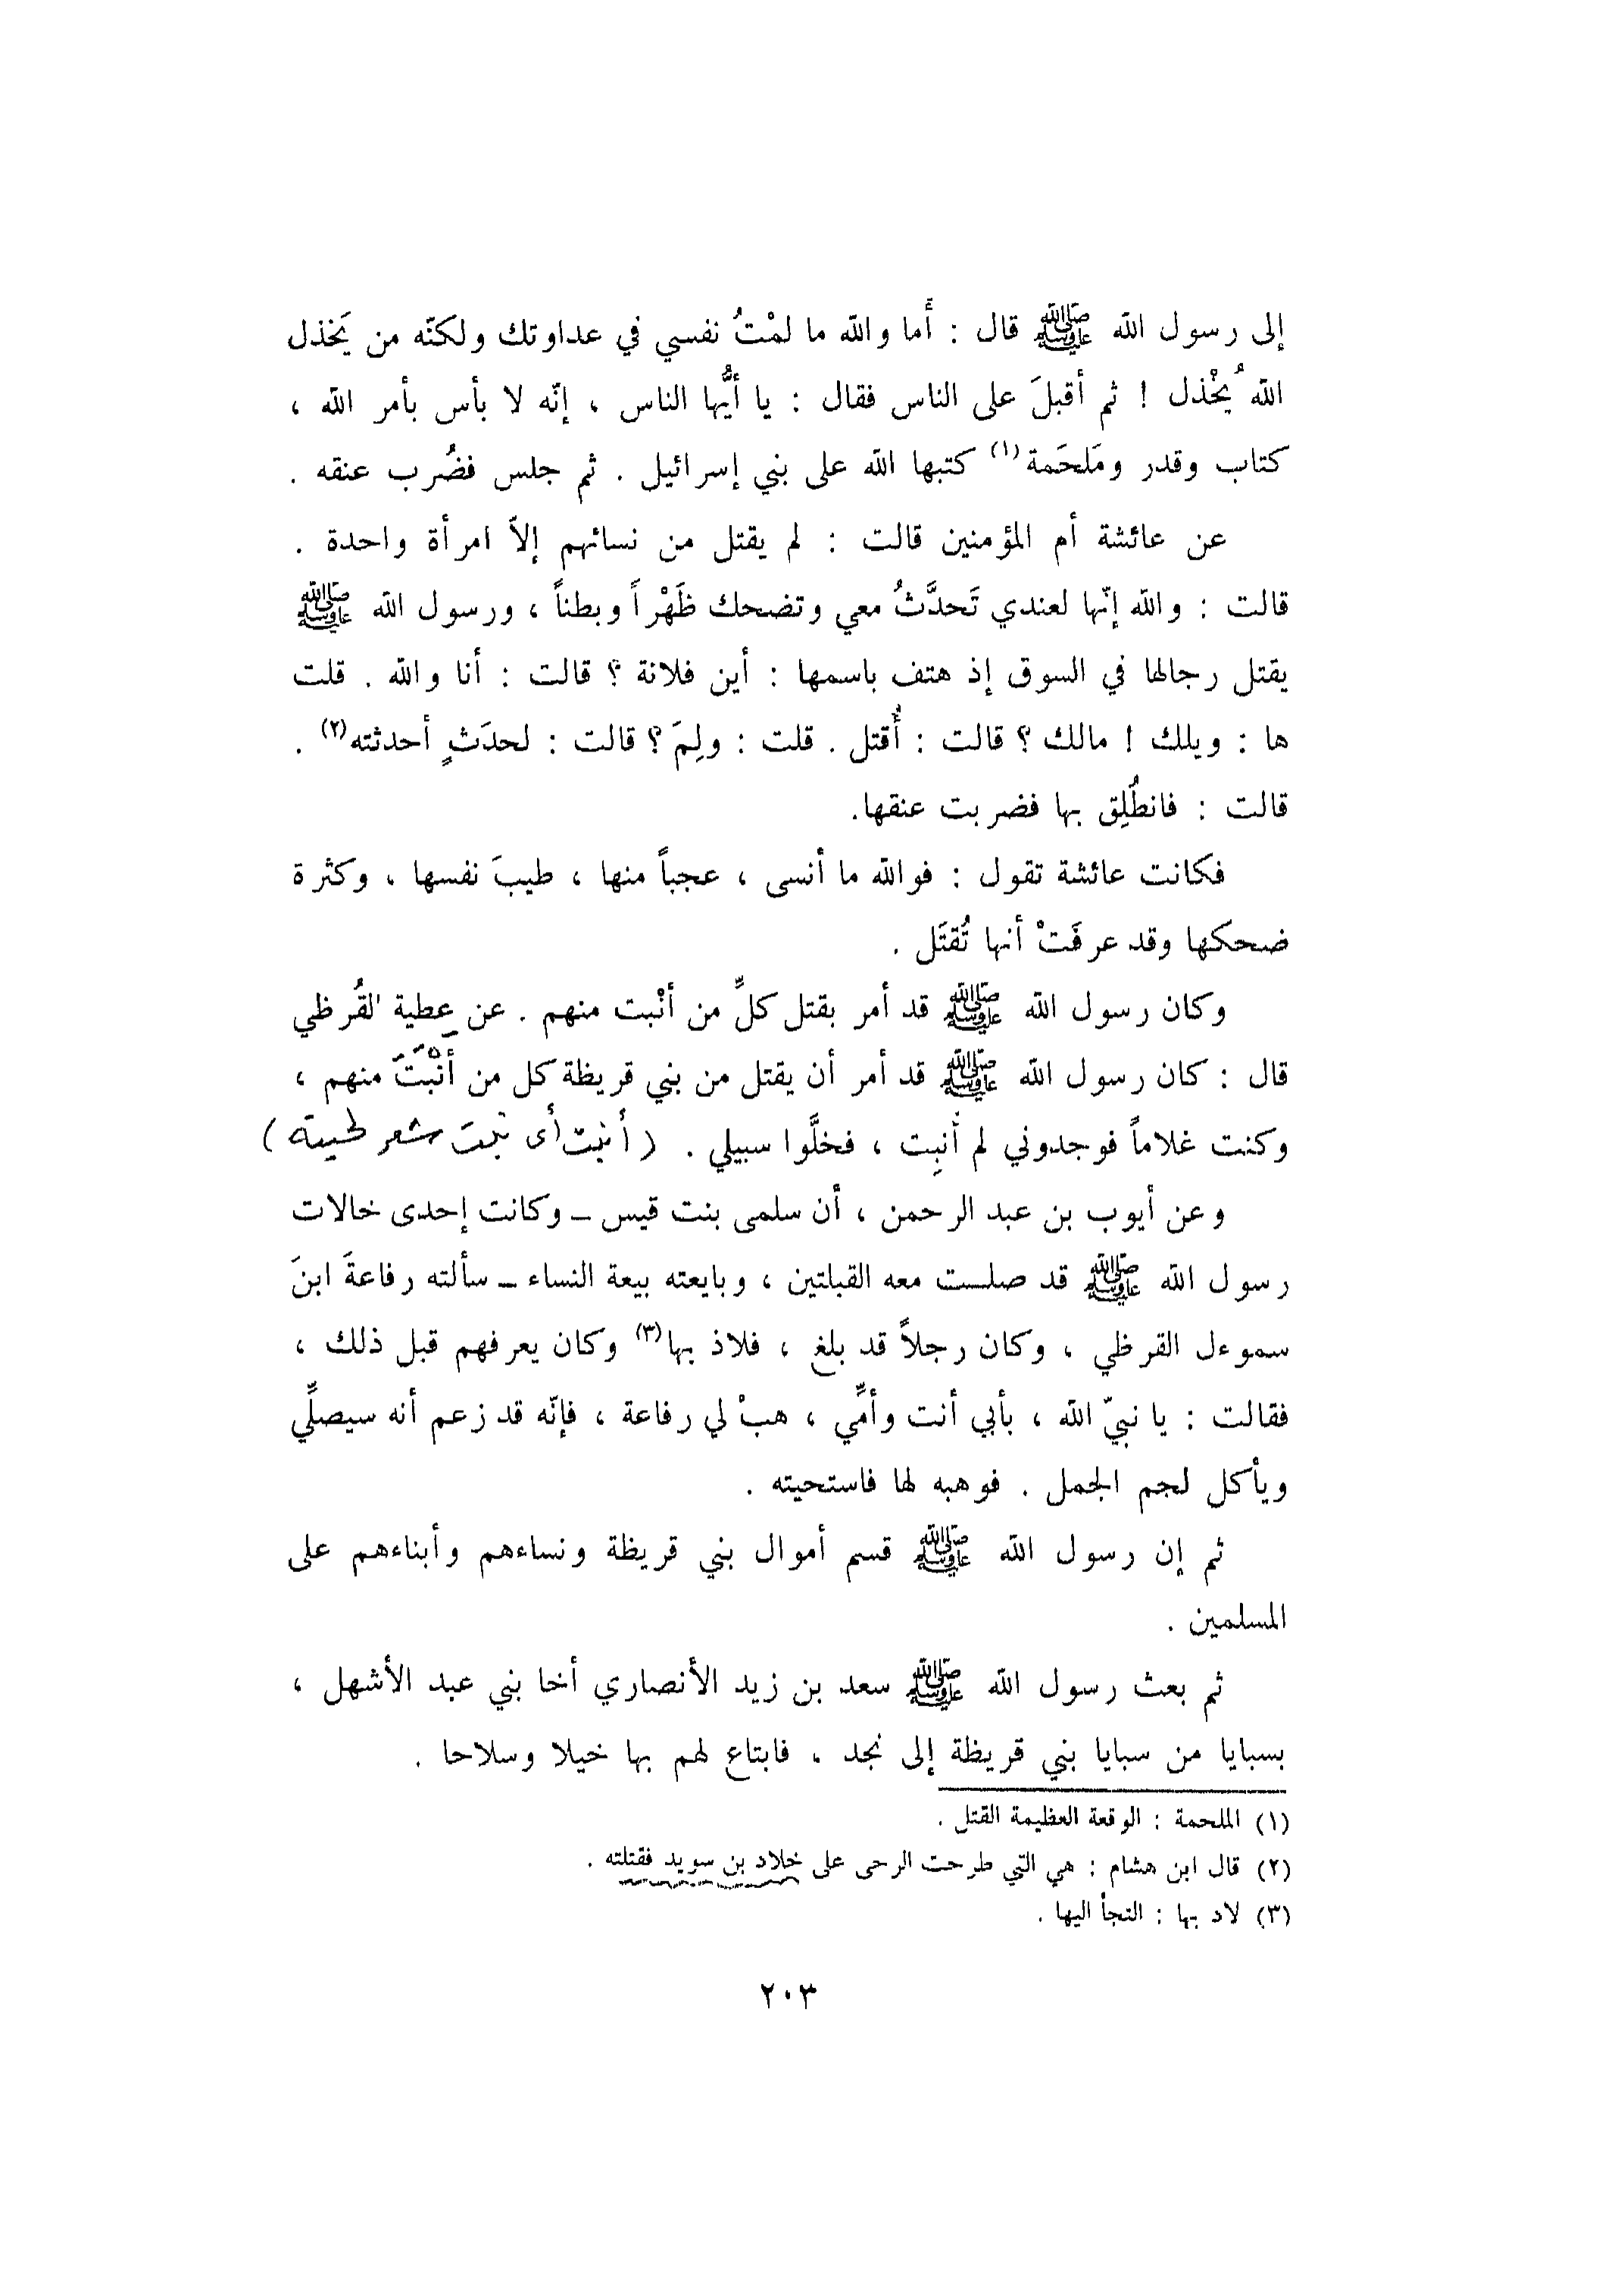 إلى رسول الله ﷺ قال : أَما والله ما لمْتُ نفسي في عداوتك ولكنّه من يَخذل
اللهُ يُخْذل ! ثم أقبلَ على الناس فقال : يا أيُّها الناس ، إنّه لا بأس بأمر الله ،
كتاب وقدر ومَلحَمة(١) كتبها الله على بني إسرائيل . ثم جلس فضُرب عنقه .
عن عائشة أم المؤمنين قالت : لم يقتل من نسائهم إلاّ امرأة واحدة .
قالت : والله إنّها لعندي تَحدَّثُ معي وتضحك ظَهْراً وبطناً ، ورسول الله ﷺ
يقتل رجالها في السوق إذ هتف باسمها : أين فلانة ؟ قالت : أنا والله . قلت
ها : ويلك ! مالك ؟ قالت : أُقتل . قلت : ولِمَ ؟ قالت : لحدَثٍ أحدثته(٢) .
قالت : فانطُلِق بها فضربت عنقها.
فكانت عائشة تقول : فوالله ما أنسى ، عجباً منها ، طيبَ نفسها ، وكثرة
ضحكها وقد عرفَتْ أنها تُقتَل .
وكان رسول الله ﷺ قد أمر بقتل كلِّ من أنْبت منهم . عن عطية القُرظي
قال : كان رسول الله ﷺ قد أمر أن يقتل من بني قريظة كل من أَنْبَتَ منهم ،
وكنت غلاماً فوجدوني لم أُنبِت ، فخلَّوا سبيلي . ( أنبت أى نبت شعر لحيته )
وعن أيوب بن عبد الرحمن ، أن سلمى بنت قيس ــ وكانت إحدى خالات
رسول الله ﷺ قد صلـت معه القبلتين ، وبايعته بيعة النساء ــ سألته رفاعةَ ابنَ
سموءل القرظي ، وكان رجلاً قد بلغ ، فلاذ بها(٣) وكان يعرفهم قبل ذلك ،
فقالت : يا نبيّ الله ، بأبي أنت وأمِّي ، هبْ لي رفاعة ، فإنّه قد زعم أنه سيصلِّي
ويأكل لحم الجمل . فوهبه لها فاستحيته .
ثم إن رسول الله ﷺ قسم أموال بني قريظة ونساءهم وأبناءهم على
المسلمين .
ثم بعث رسول الله ﷺ سعد بن زيد الأنصاري أخا بني عبد الأشهل ،
بسبايا من سبايا بني قريظة إلى نجد ، فابتاع لهم بها خيلا وسلاحا .
(١) الملحمة : الوقعة العظيمة القتل .
(٢) قال ابن هشام : هي التي طرحت الرحى على خلاد بن سويد فقتلته .
(٣) لاذ بها : التجأ اليها .
٢٠٣